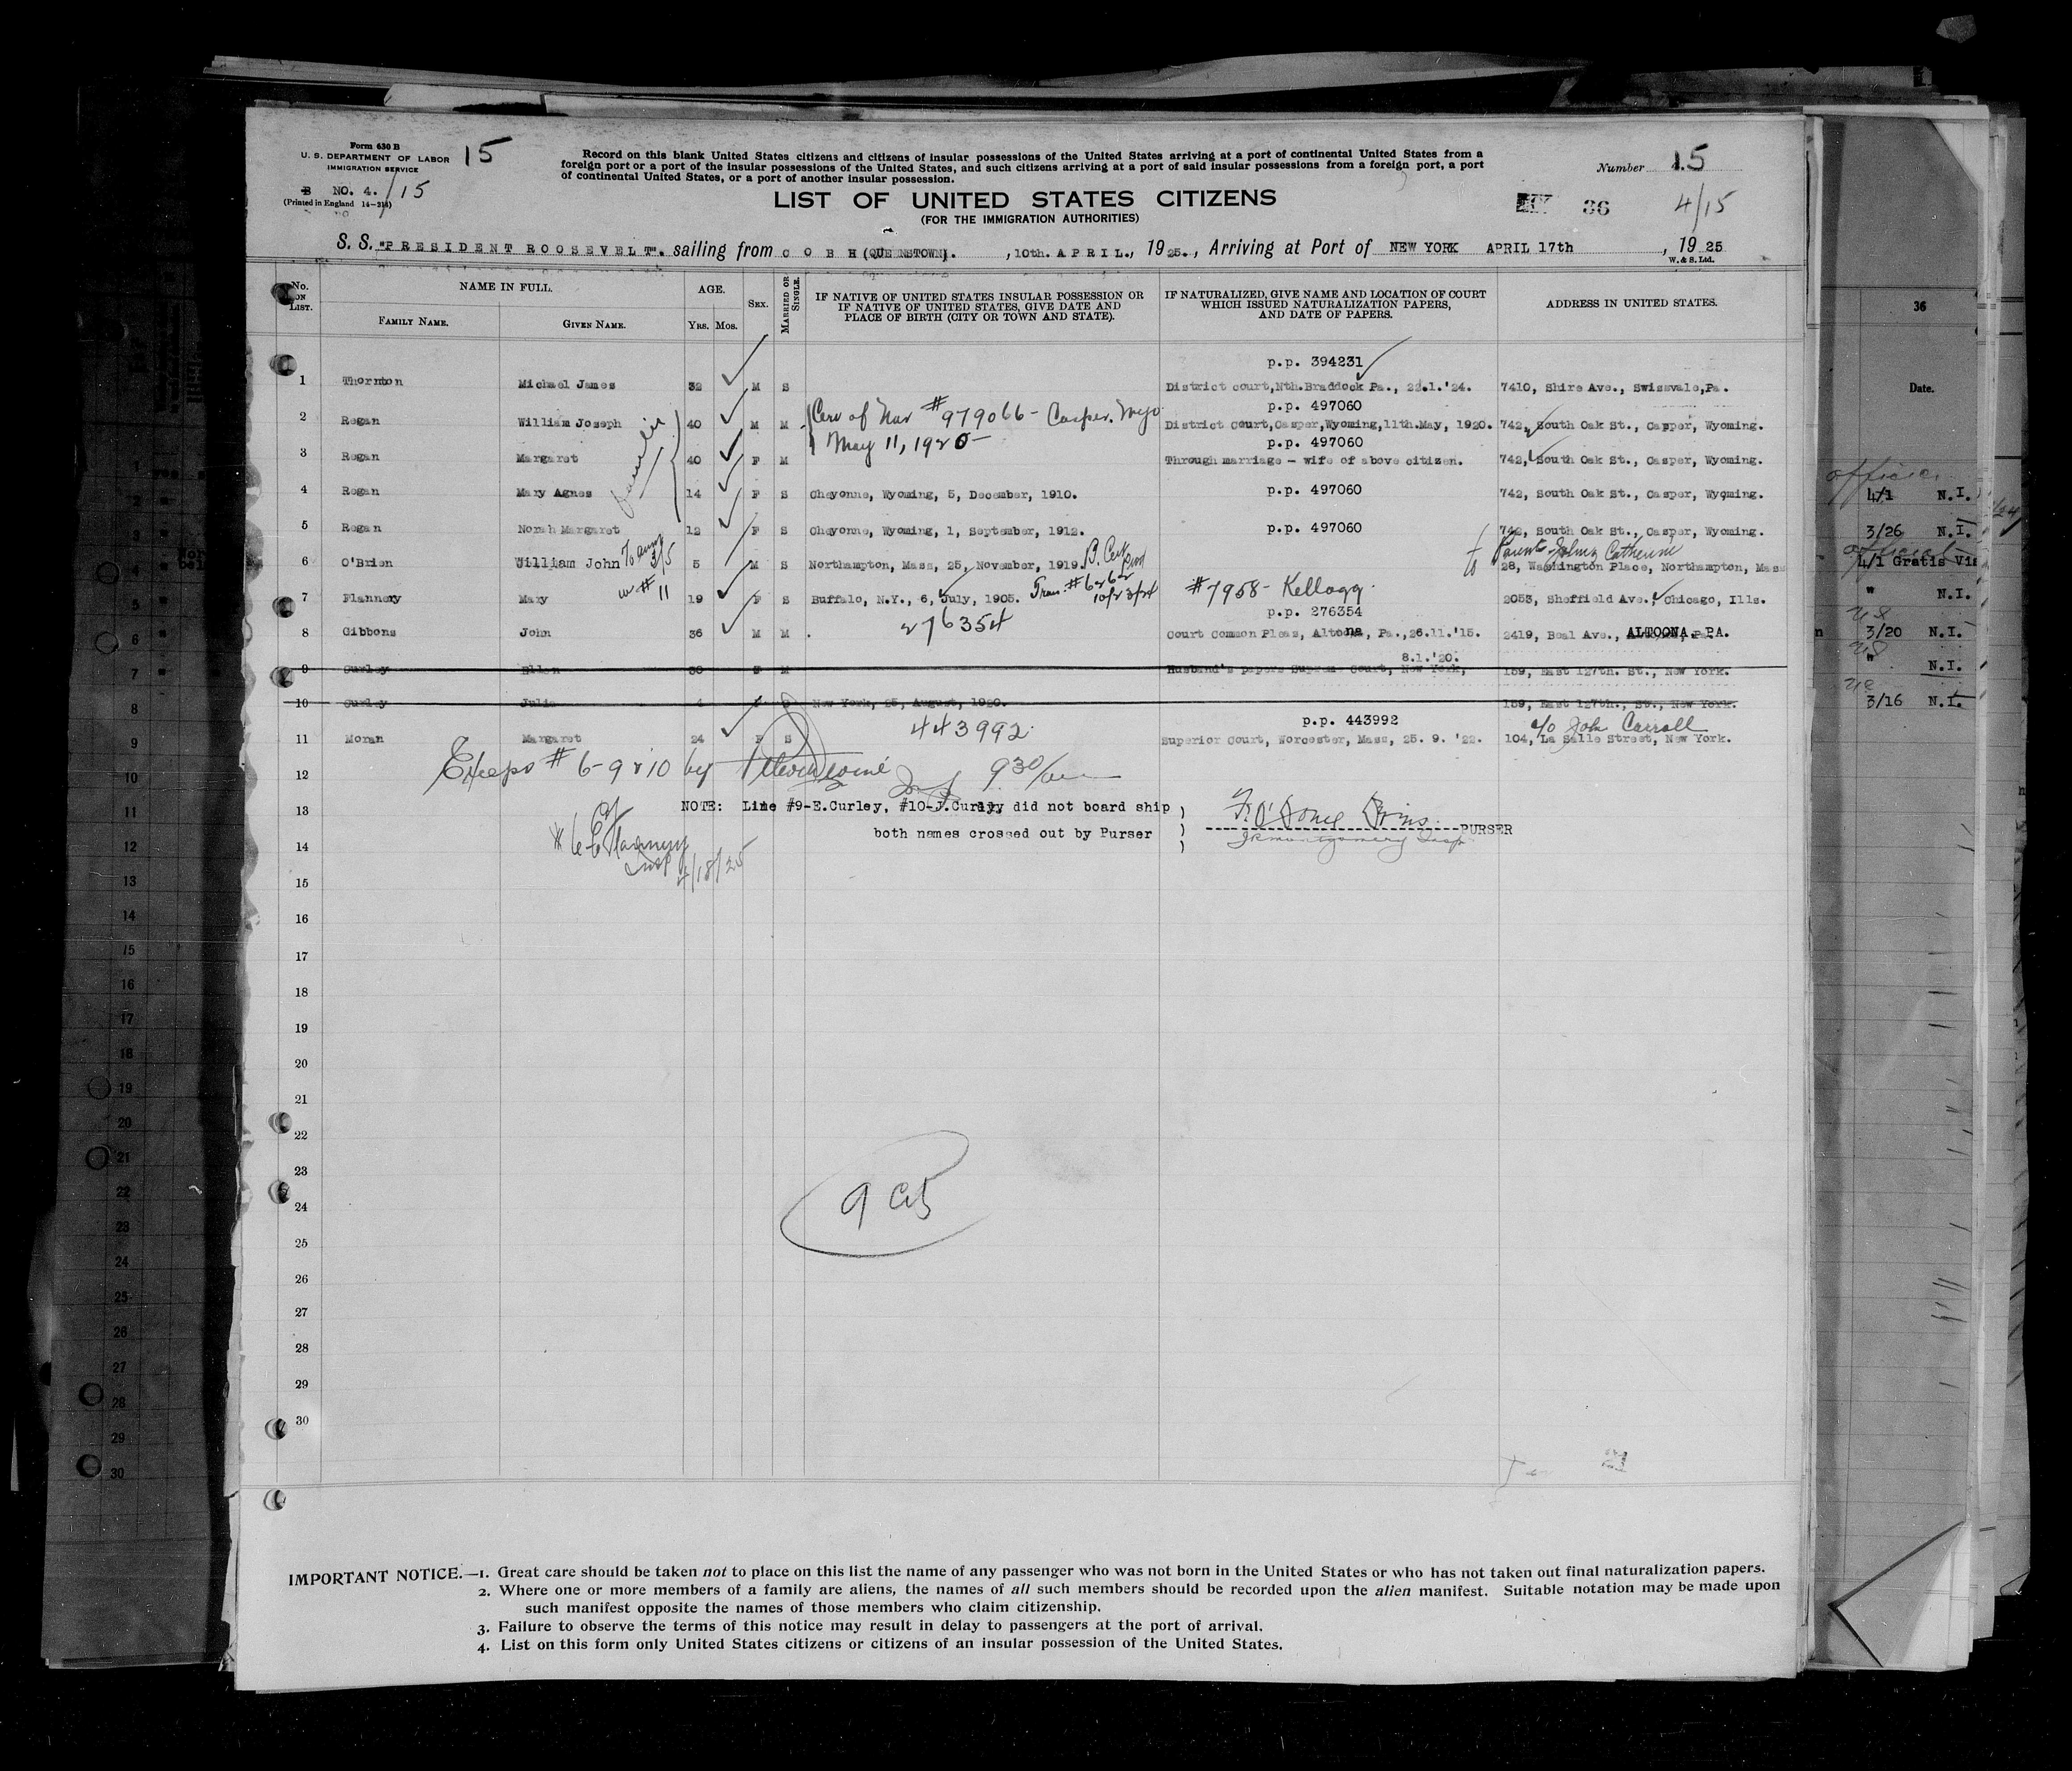 Form 630 B
U. S. DEPARTMENT OF LABOR
IMMIGRATION SERVICE
B NO. 4.
(Printed in England 14-214)
15
/15
Record on this blank United States citizens and citizens of insular possessions of the United States arriving at a port of continental United States from a
foreign port or a port of the insular possessions of the United States, and such citizens arriving at a port of said insular possessions from a foreign port, a port
of continental United States, or a port of another insular possession.
Number 15
LIST OF UNITED STATES CITIZENS
(FOR THE IMMIGRATION AUTHORITIES)
36
4/15
S. S. "PRESIDENT ROOSEVELT". sailing from COBH (QUEENSTOWN). , 10th. APRIL., 1925., Arriving at Port of NEW YORK APRIL 17th , 1925
W. & S. Ltd.
No. ON LIST.
NAME IN FULL.
FAMILY NAME.
GIVEN NAME.
AGE.
YRS. MOS.
SEX.
MARRIED OR SINGLE.
IF NATIVE OF UNITED STATES INSULAR POSSESSION OR
IF NATIVE OF UNITED STATES, GIVE DATE AND
PLACE OF BIRTH (CITY OR TOWN AND STATE).
IF NATURALIZED, GIVE NAME AND LOCATION OF COURT
WHICH ISSUED NATURALIZATION PAPERS,
AND DATE OF PAPERS.
ADDRESS IN UNITED STATES.
p.p. 394231
1 Thornton Michael James 32 M S District court,Nth.Braddock Pa., 22.1.'24. 7410, Shire Ave., Swissvale,Pa.
Cert of Nat #979066 - Casper. Wyo
p.p. 497060
2 Regan William Joseph 40 M M District Court,Casper,Wyoming,11th.May, 1920. 742, South Oak St., Casper, Wyoming.
May 11, 1920
p.p. 497060
3 Regan Margaret 40 F M Through marriage - wife of above citizen. 742, South Oak St., Casper, Wyoming.
4 Regan Mary Agnes 14 F S Cheyenne, Wyoming, 5, December, 1910. p.p. 497060 742, South Oak St., Casper, Wyoming.
5 Regan Norah Margaret 12 F S Cheyenne, Wyoming, 1, September, 1912. p.p. 497060 742, South Oak St., Casper, Wyoming.
Parents John & Catherine
6 O'Brien William John 5 M S Northampton, Mass, 25, November, 1919. B. Cert 28, Washington Place, Northampton, Mass
w #11
#7958- Kellogg
7 Flannery Mary 19 F S Buffalo, N.Y., 6, July, 1905. 2053, Sheffield Ave., Chicago, Ills.
276354
p.p. 276354
8 Gibbons John 36 M M Court Common Pleas, Altoona, Pa.,26.11.'15. 2419, Beal Ave., ALTOONA, PA.
8.1.'20.
9 Curley Ellen 30 F M Husband's papers Supreme Court, New York, 159, East 127th. St., New York.
10 Curley Julia 4 F S New York, 25, August, 1920. 159, East 127th., St., New York.
443992
p.p. 443992
c/o John Carroll
11 Moran Margaret 24 F S Superior Court, Worcester, Mass, 25. 9. '22. 104, La Salle Street, New York.
12
Except # 6-9 & 10 by 9 30/am
13 NOTE: Line #9-E.Curley, #10-J.Curley did not board ship
both names crossed out by Purser
PURSER
#6
Insp 4/18/25
14
15
16
17
18
19
20
21
22
23
24
25
26
27
28
29
30
9
21
IMPORTANT NOTICE.—1. Great care should be taken not to place on this list the name of any passenger who was not born in the United States or who has not taken out final naturalization papers.
2. Where one or more members of a family are aliens, the names of all such members should be recorded upon the alien manifest. Suitable notation may be made upon
such manifest opposite the names of those members who claim citizenship.
3. Failure to observe the terms of this notice may result in delay to passengers at the port of arrival.
4. List on this form only United States citizens or citizens of an insular possession of the United States.
36
Date.
4/1 N.I.
3/26 N.I.
4/1 Gratis
" N.I.
3/20 N.I.
" N.I.
3/16 N.I.